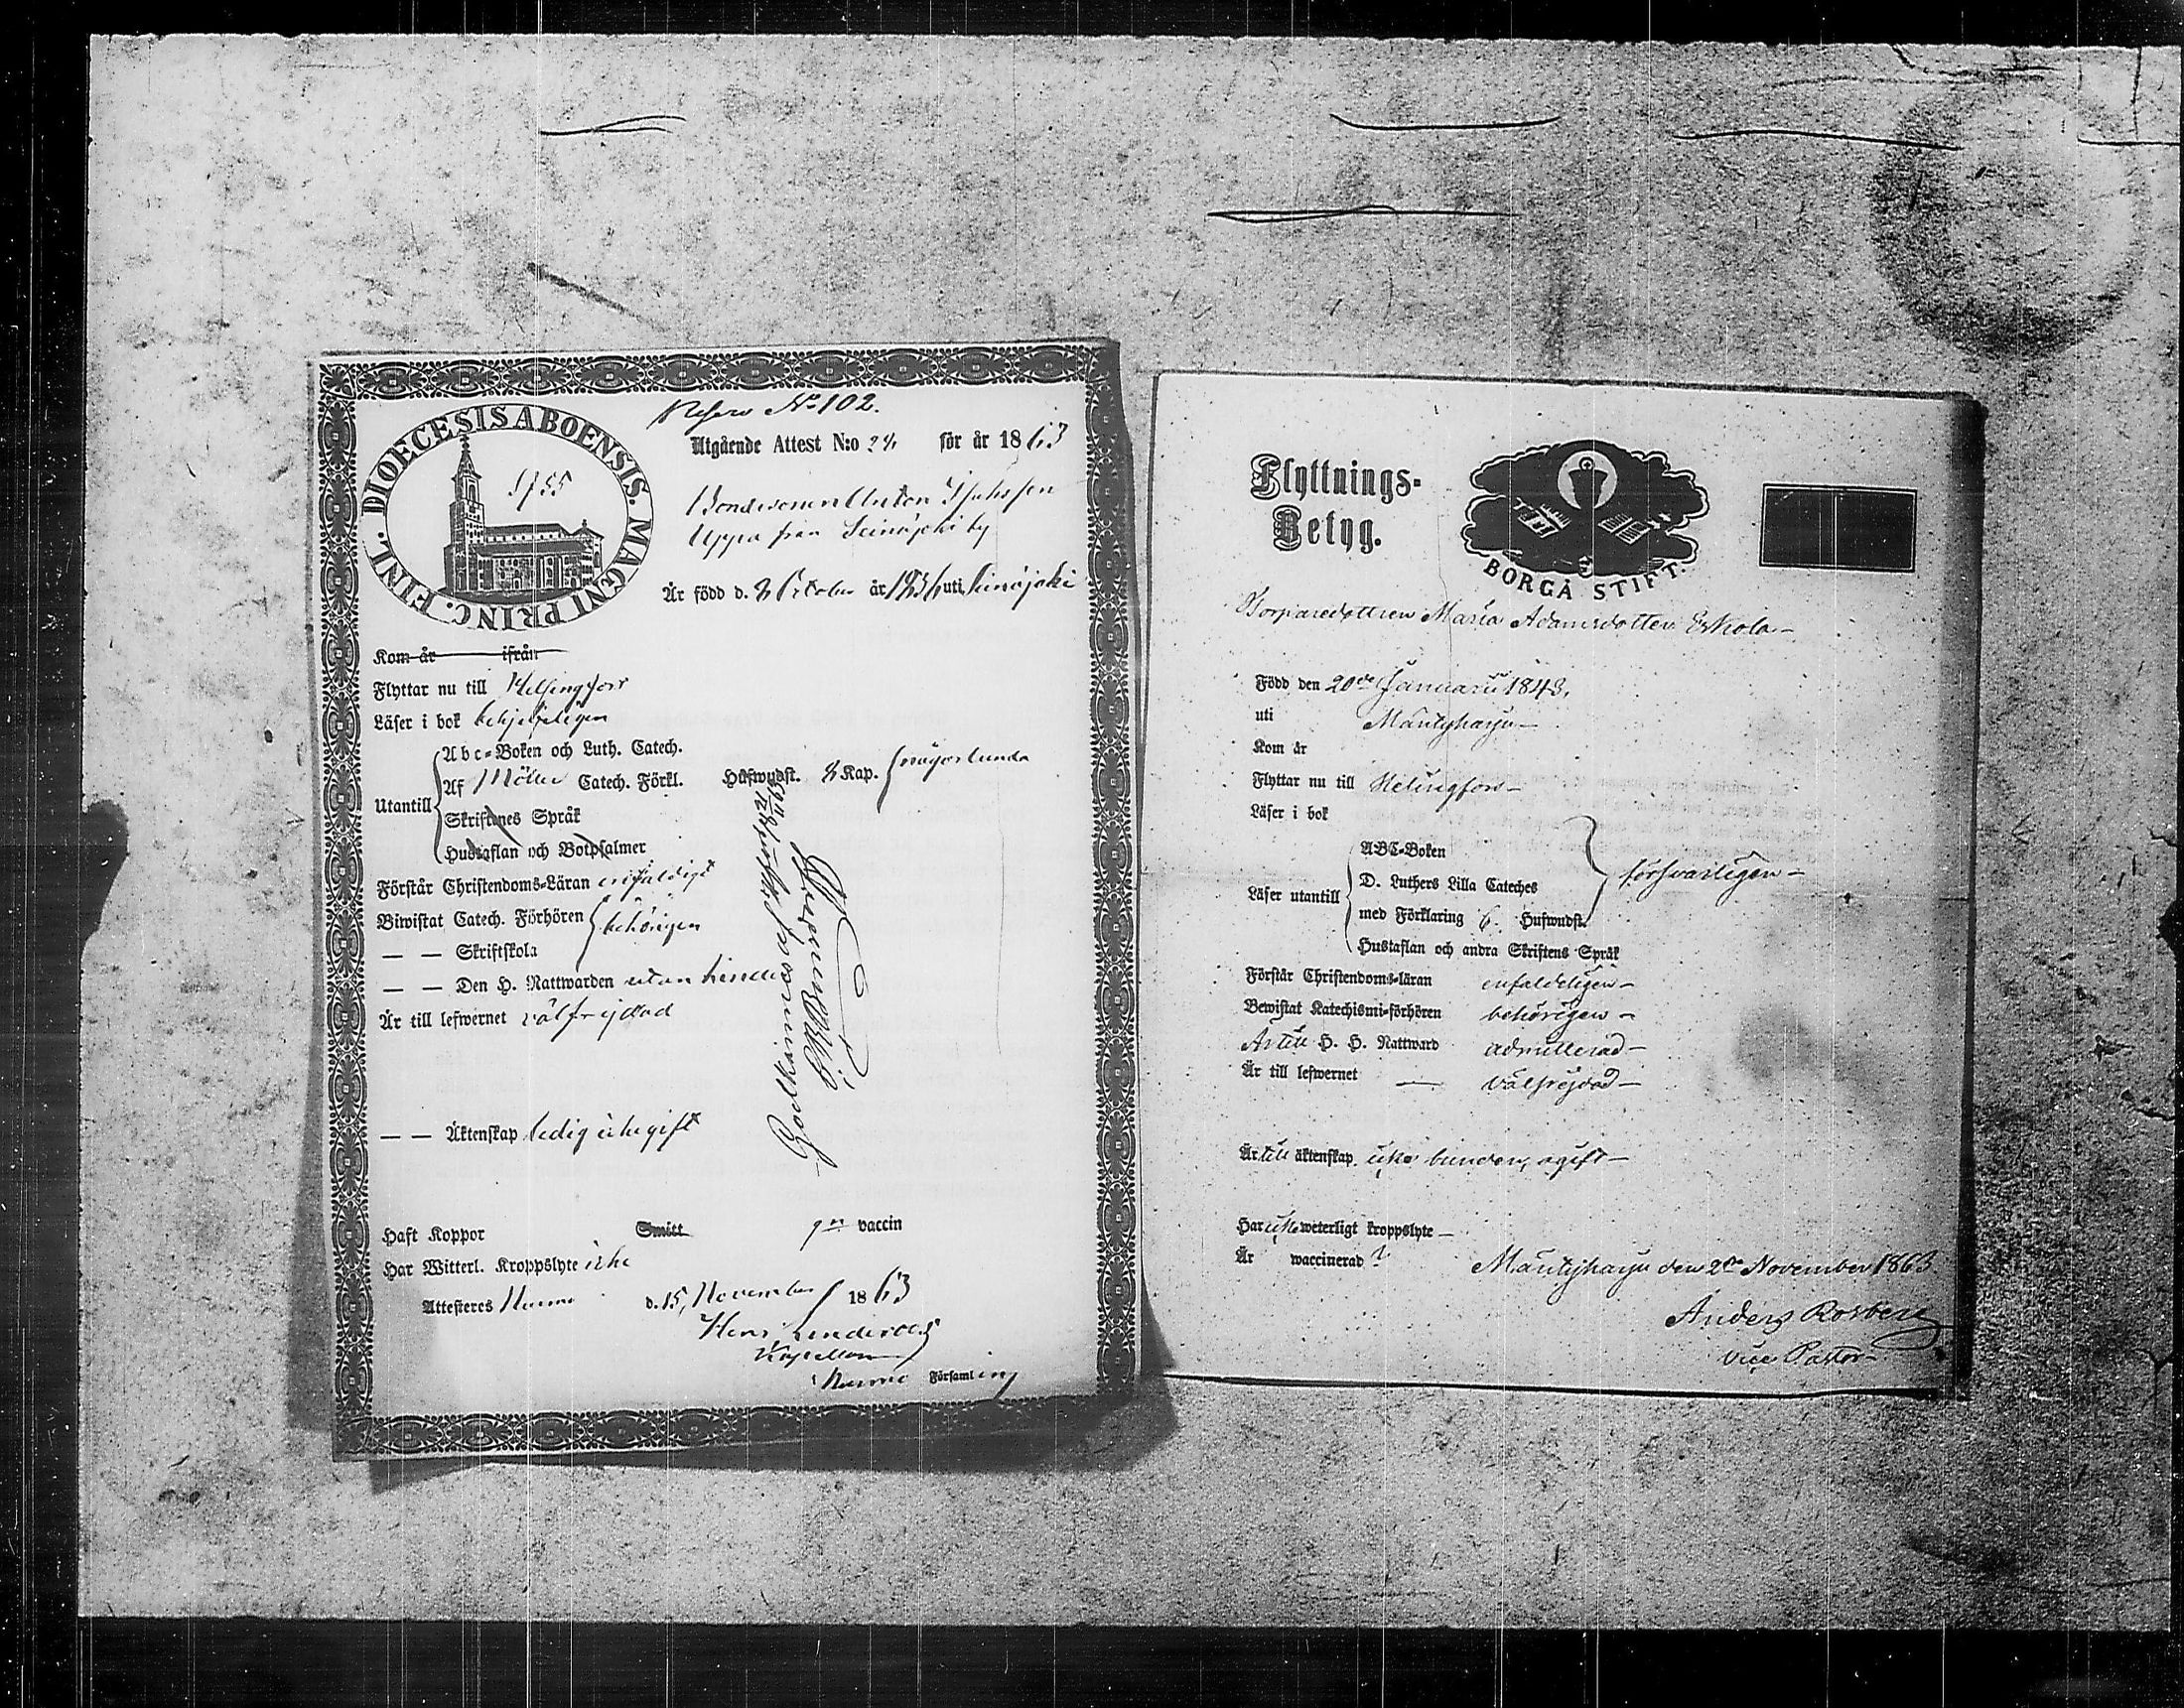 DIOECESIS ABOENSIS. MAGNI PRINC. FINL.
N:o 102.
Utgående Attest N:o 24 för år 1863
Bondesonen Anton
från Seinäjoki by
Är född d. 8 October år 1836 uti Seinäjoki
Kom år ifrån
Flyttar nu till Helsingfors
Läser i bok behjelpligen
Utantill
Abc-Boken och Luth. Catech.
Af Möller Catech. Förkl. Hufwudst. 8 Kap. någorlunda
Skriftenes Språk
Hustaflan och Botpsalmer
Förstår Christendoms-Läran enfaldigt
Biwistat Catech. Förhören behörigen
— — Skriftskola
— — Den H. Nattwarden utan hinder
Är till lefwernet välfrejdad
— — Äktenskap ledig icke gift
Haft Koppor Smitt vaccin
Har Witterl. Kroppslyte icke
Attesteres Nurmo d. 15, November 1863
Kapellan
Nurmo Församling
Godkännes af
Flyttnings-
Betyg.
BORGÅ STIFT.
Torparedottren Maria Adamsdotter Eskola –
Född den 20de Januarii 1843,
uti Mäntyharju –
Kom år
Flyttar nu till Helsingfors –
Läser i bok
Läser utantill
ABC-Boken
D. Luthers Lilla Cateches
med Förklaring 6. Hufwudst.
Hustaflan och andra Skriftens Språk
försvarligen –
Förstår Christendoms-läran enfaldeligen –
Bewistat Katechismi-förhören behörigen –
Är till H. H. Nattward admitterad –
Är till lefwernet — välfrejdad –
Är till äktenskap icke bunden, ogift –
Har icke weterligt kroppslyte –
Är waccinerad ?
Mäntyharju den 2dra November 1863
Anders Rosberg
Vice Pastor –